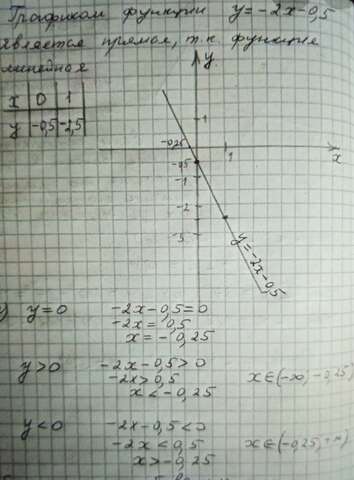 Графиком функции y=-2x-0,5
является прямая, т.к. функция
линейная
x 0 1
y -0,5 -2,5
y
1
-0,25
-0,5
1
x
-1
-2
-3
y=-2x-0,5
) y=0 -2x-0,5=0
-2x=0,5
x=-0,25
y>0 -2x-0,5>0
-2x>0,5 x∈(-∞;-0,25)
x<-0,25
y<0 -2x-0,5<0
-2x<0,5 x∈(-0,25;+∞)
x>-0,25